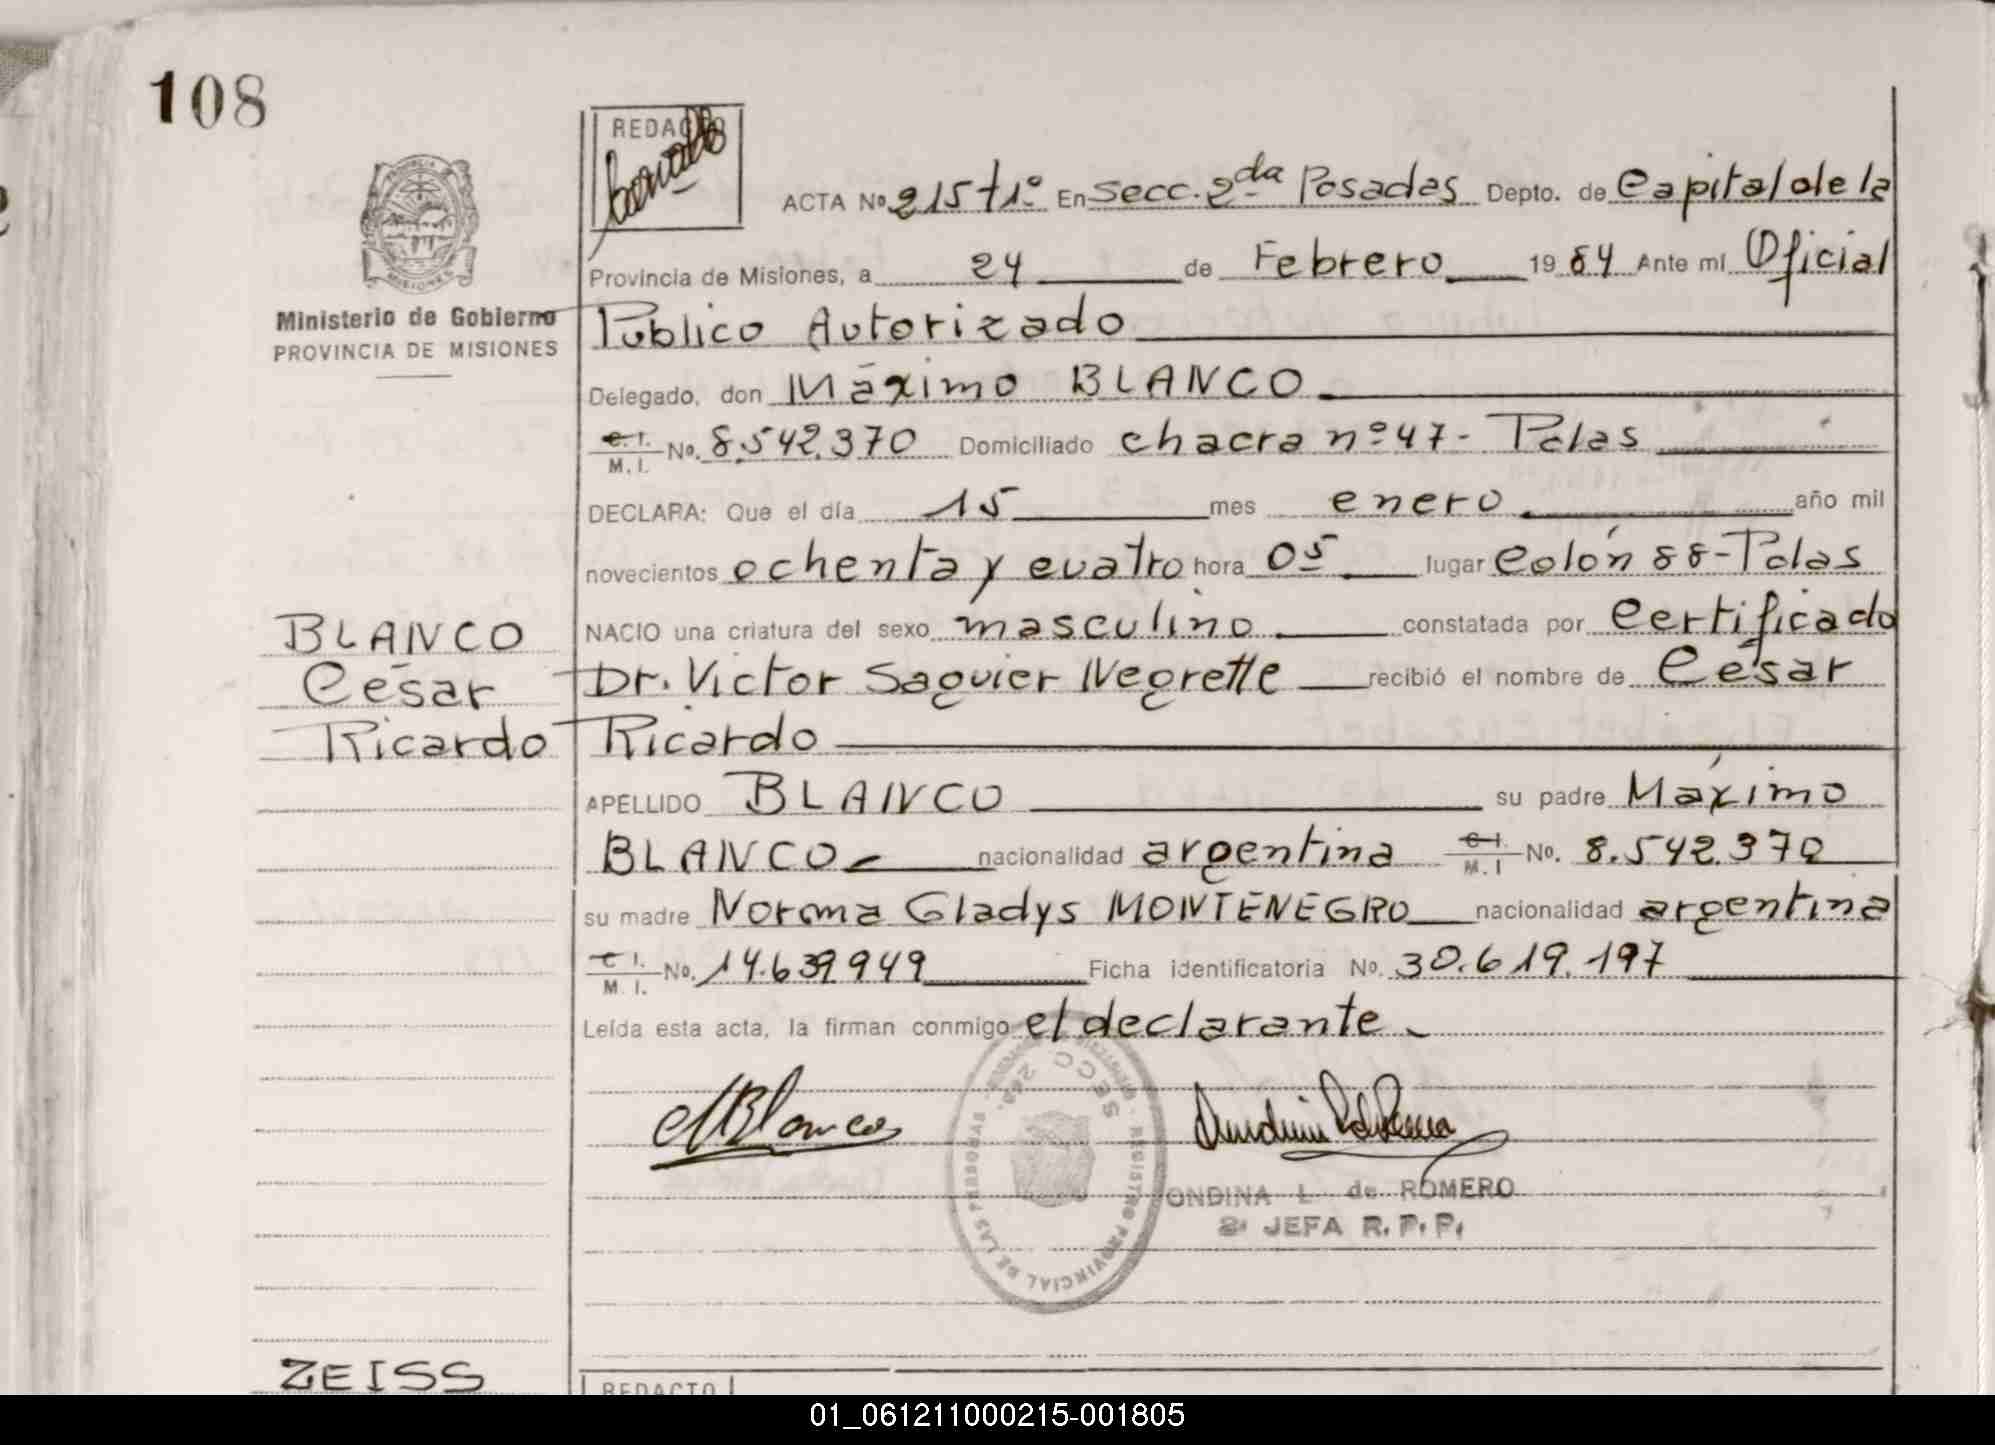 108
REDACTO
ACTA No. 215 t1° En Secc. 2da Posadas Depto. de Capital de la
Provincia de Misiones, a 24 de Febrero 1984 Ante mi Oficial
Ministerio de Gobierno
PROVINCIA DE MISIONES
Público Autorizado
Delegado, don Máximo BLANCO
C. I. M. I. No. 8.542.370 Domiciliado chacra nº 47 - Pdas
DECLARA: Que el día 15 mes enero año mil
novecientos ochenta y cuatro hora 05 lugar Colón 88 - Pdas
NACIO una criatura del sexo masculino constatada por Certificado
Dr. Victor Saguier Negrette recibió el nombre de César
Ricardo
BLANCO
César
Ricardo
APELLIDO BLANCO su padre Máximo
BLANCO nacionalidad argentina C. I. M. I No. 8.542.370
su madre Norma Gladys MONTENEGRO nacionalidad argentina
C I. M. I. No. 14.639949 Ficha identificatoria No. 30.619.197
Leída esta acta, la firman conmigo el declarante
MBlanco
REGISTRO PROVINCIAL DE LAS PERSONAS
SECC 2da.
ONDINA L. de ROMERO
2ª JEFA R. P. P.
ZEISS
REDACTO
01_061211000215-001805